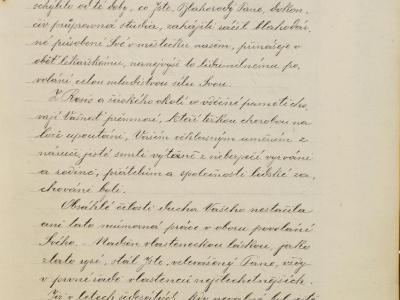 schýlilo od té doby, co jste, Blahorodý Pane, dokon,
čiv průpravná studia, zahájiti ráčil blahodár,
né působení Své v městečku našem, přinášeje v
oběť lékařskému, nanejvýš to lidumilnému po,
volání celou mladistvou sílu Svou.
Z Rene a širokého okolí ve vděčné paměti cho,
vají Vašnosti přemnozí, kteří těžkou chorobou na
lože upoutáni, Vaším věhlasným uměním z
náručí jisté smrti vytrženi z nebezpečí vyrváni
a rodině, přátelům a společnosti lidské za,
chováni byli.
Obsáhlé činnosti ducha Vašeho nestačila
ani tato namorná práce v oboru povolání
Svého. Nadšen vlasteneckou láskou, jako
zlato ryzí, stál jste, velevážený Pane, vždy
v první řadě vlastenců nejšlechetnějších.
Již v letech šedesátých, kdy